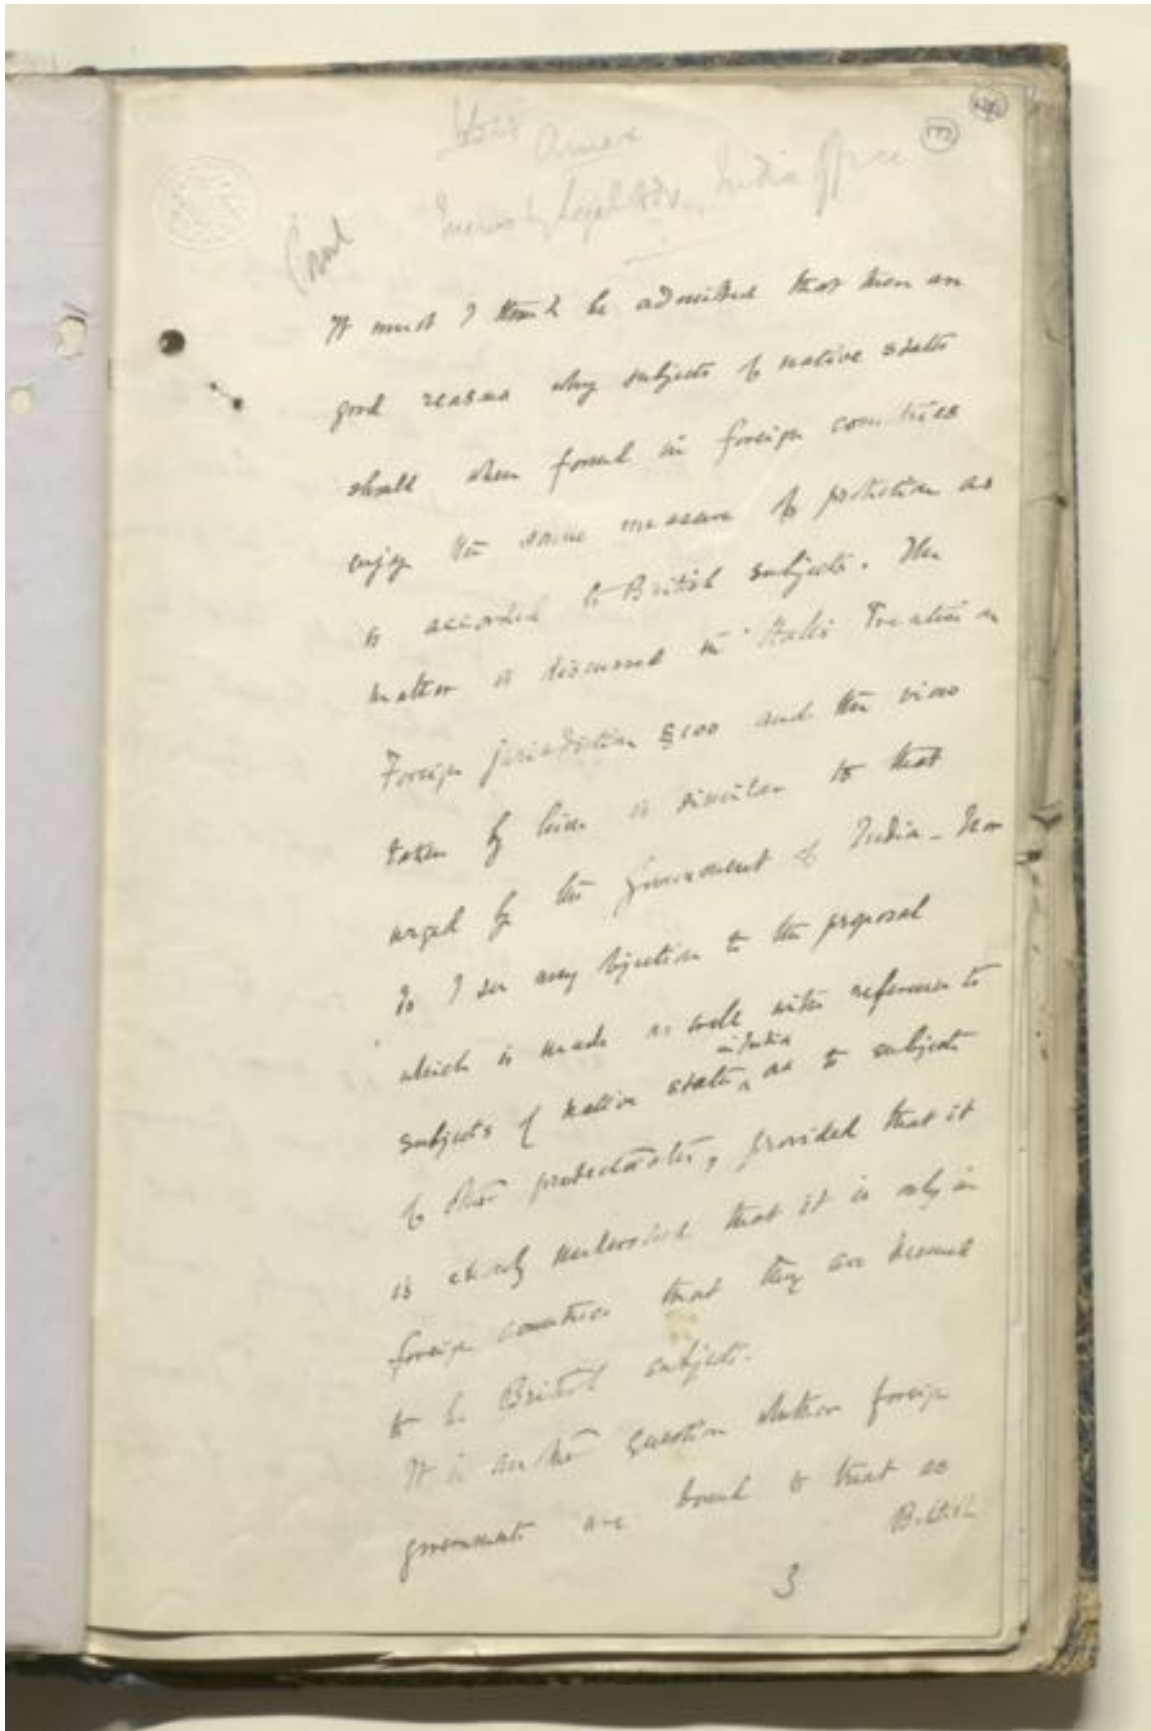 Annex
by Legal Adv., India Office
It must I think be admitted that there are
good reasons why subjects of native states
should when found in foreign countries
enjoy the same measure of protection as
is accorded to British subjects. The
matter is discussed in Hall's Treatise on
Foreign jurisdiction § 100 and the view
taken by him is similar to that
urged by the Government of India - Nor
do I see any objection to the proposal
which is made as well with reference to
in India
subjects of native states as to subjects
of other protectorates, provided that it
is clearly understood that it is only in
foreign countries that they are deemed
to be British subjects.
It is another question whether foreign
governments are bound to treat as
British
3